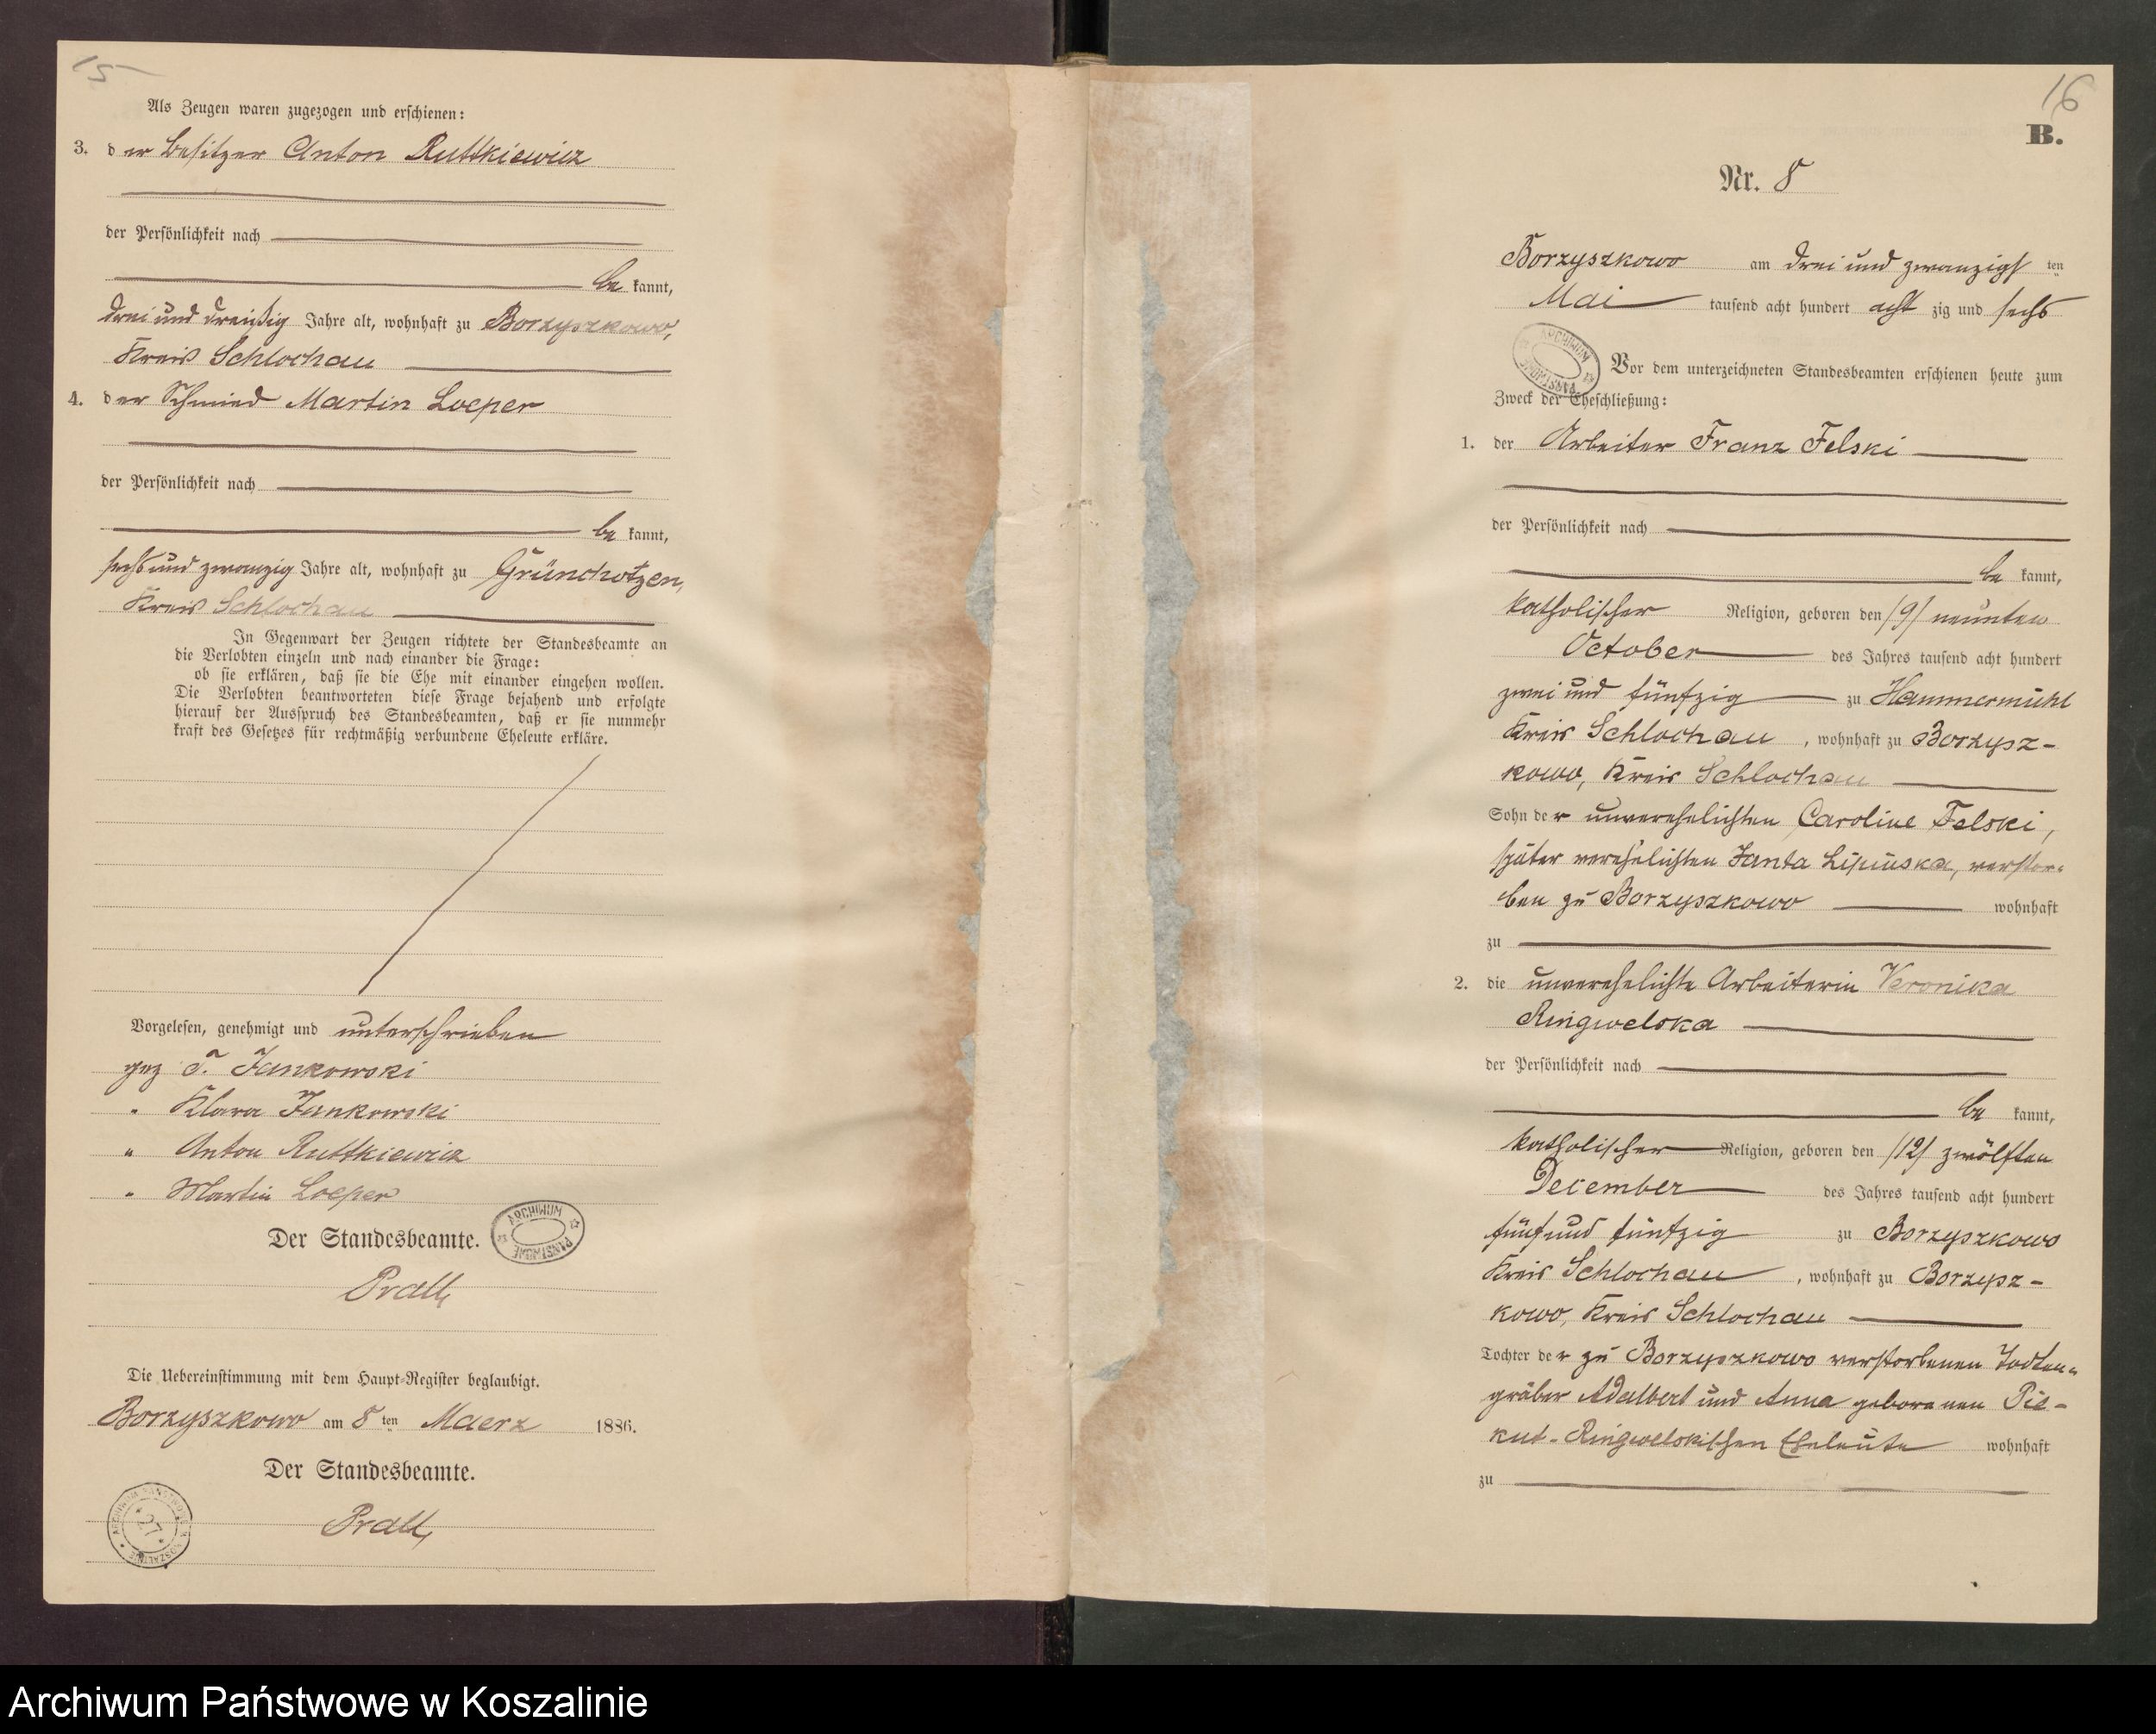 15
Als Zeugen waren zugezogen und erschienen:
3. der Besitzer Anton Ruttkiewicz
der Persönlichkeit nach
be kannt,
drei und dreißig Jahre alt, wohnhaft zu Borzyszkowo,
Kreis Schlochau
4. der Schmied Martin Loeper
der Persönlichkeit nach
be kannt,
sechs und zwanzig Jahre alt, wohnhaft zu Grünchotzen,
Kreis Schlochau
In Gegenwart der Zeugen richtete der Standesbeamte an
die Verlobten einzeln und nach einander die Frage:
ob sie erklären, daß sie die Ehe mit einander eingehen wollen.
Die Verlobten beantworteten diese Frage bejahend und erfolgte
hierauf der Ausspruch des Standesbeamten, daß er sie nunmehr
kraft des Gesetzes für rechtmäßig verbundene Eheleute erkläre.
Vorgelesen, genehmigt und unterschrieben
gez J. Jankowski
" Klara Jankowski
" Anton Ruttkiewicz
" Martin Loeper
Der Standesbeamte.
ARCHIWUM PAŃSTWOWE
Prall
Die Uebereinstimmung mit dem Haupt-Register beglaubigt.
Borzyszkowo am 8 ten Maerz 1886.
Der Standesbeamte.
Prall
ARCHIWUM PAŃSTWOWE KOSZALINIE
27
16
B.
Nr. 8
Borzyszkowo am drei und zwanzigs ten
Mai tausend acht hundert acht zig und sechs
ARCHIWUM PAŃSTWOWE
Vor dem unterzeichneten Standesbeamten erschienen heute zum
Zweck der Eheschließung:
1. der Arbeiter Franz Felski
der Persönlichkeit nach
be kannt,
katholischer Religion, geboren den /9/ neunten
October des Jahres tausend acht hundert
zwei und fünfzig zu Hammermühl
Kreis Schlochau, wohnhaft zu Borzysz-
kowo, Kreis Schlochau
Sohn der unverehelichten Caroline Felski,
später verehelichten Janta Lipinska, verstor-
ben zu Borzyszkowo wohnhaft
zu
2. die unverehelichte Arbeiterin Veronika
Ringwelska
der Persönlichkeit nach
be kannt,
katholischer Religion, geboren den /12/ zwölften
December des Jahres tausend acht hundert
fünf und fünfzig zu Borzyszkowo
Kreis Schlochau, wohnhaft zu Borzysz-
kowo, Kreis Schlochau
Tochter der zu Borzyszkowo verstorbenen Todten-
gräber Adalbert und Anna geborenen Pie-
kut-Ringwelskischen Eheleute wohnhaft
zu
Archiwum Państwowe w Koszalinie